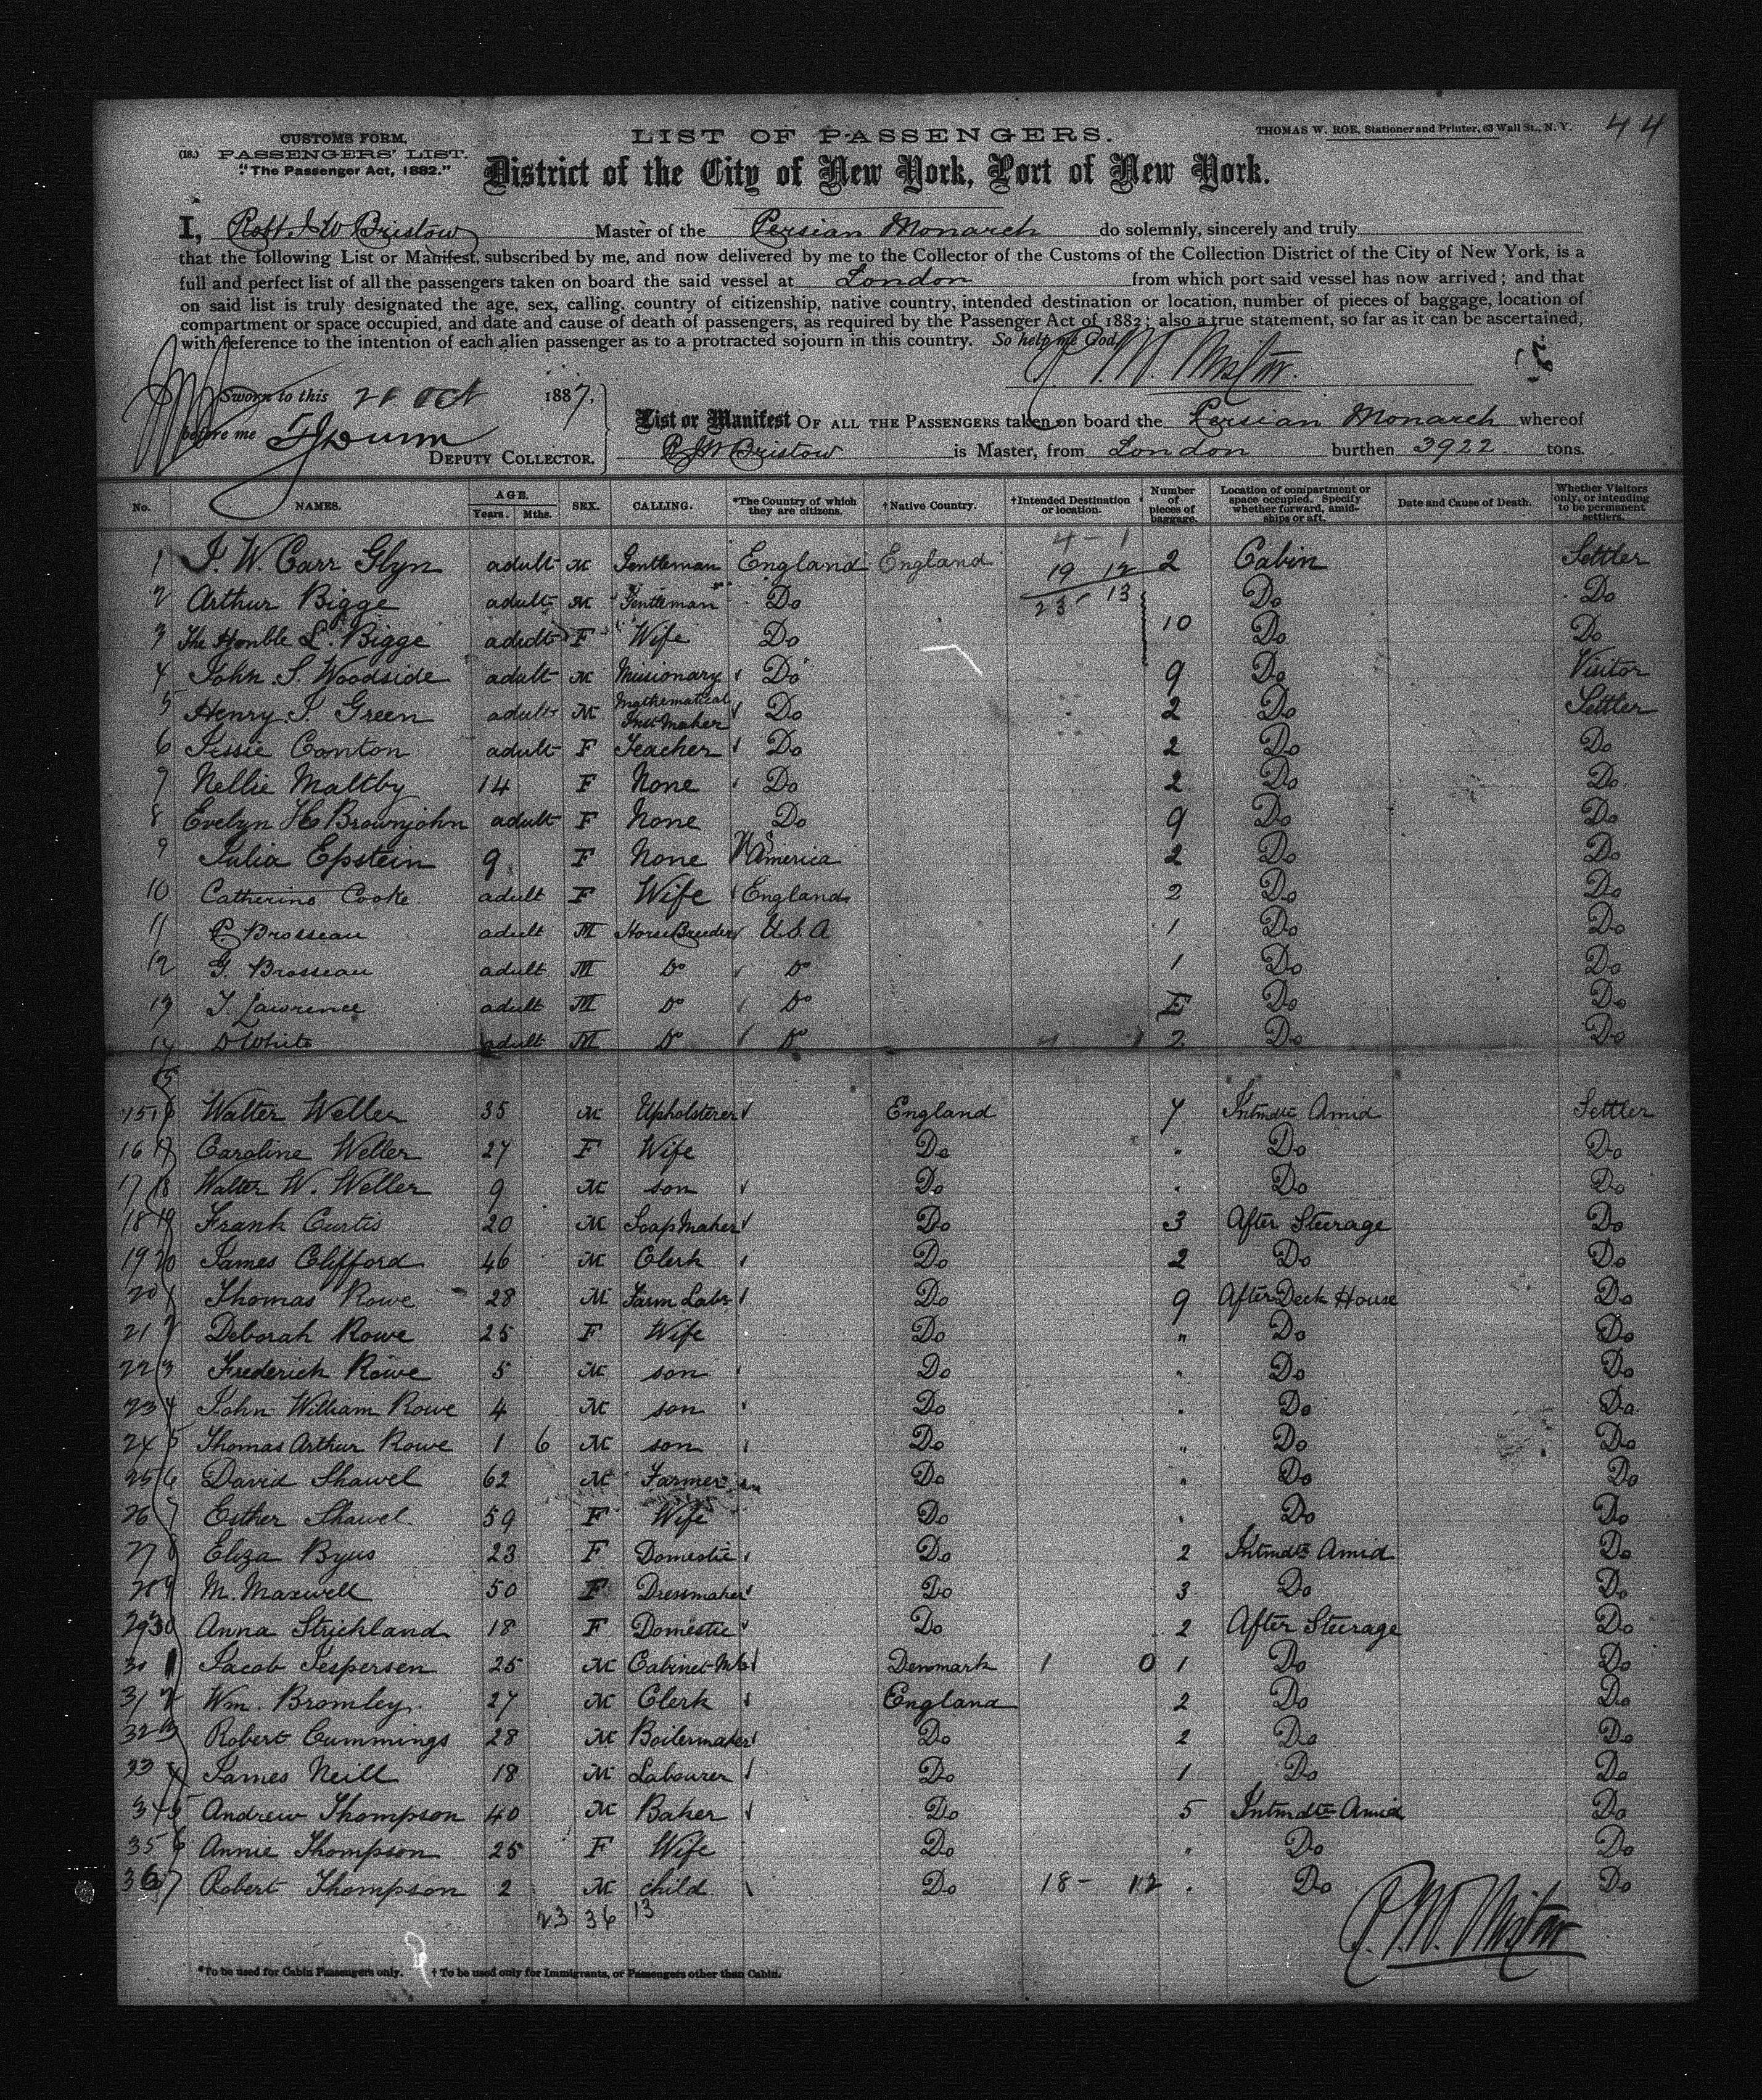 CUSTOMS FORM.
(18.) PASSENGERS' LIST.
"The Passenger Act, 1882."
LIST OF PASSENGERS.
THOMAS W. ROE, Stationer and Printer, 63 Wall St., N. Y.
44
District of the City of New York, Port of New York.
I, Robt J W Bristow Master of the Persian Monarch do solemnly, sincerely and truly
that the following List or Manifest, subscribed by me, and now delivered by me to the Collector of the Customs of the Collection District of the City of New York, is a
full and perfect list of all the passengers taken on board the said vessel at London from which port said vessel has now arrived; and that
on said list is truly designated the age, sex, calling, country of citizenship, native country, intended destination or location, number of pieces of baggage, location of
compartment or space occupied, and date and cause of death of passengers, as required by the Passenger Act of 1882; also a true statement, so far as it can be ascertained,
with reference to the intention of each alien passenger as to a protracted sojourn in this country. So help me God,
Sworn to this 21 Oct 1887.
before me
DEPUTY COLLECTOR.
List or Manifest OF ALL THE PASSENGERS taken on board the Persian Monarch whereof
R J W Bristow is Master, from London burthen 3922 tons.
No. NAMES. AGE. Years. Mths. SEX. CALLING. *The Country of which they are citizens. †Native Country. †Intended Destination or location. Number of pieces of baggage. Location of compartment or space occupied. Specify whether forward, amidships or aft. Date and Cause of Death. Whether Visitors only, or intending to be permanent settlers.
4 - 1
1 J. W. Carr Glyn adult M Gentleman England England 19 12 2 Cabin Settler
2 Arthur Bigge adult M Gentleman Do 23 - 13 Do Do
3 The Honble L. Bigge adult F Wife Do 10 Do Do
4 John S. Woodside adult M Missionary Do 9 Do Visitor
5 Henry J. Green adult M Mathematical Inst Maker Do 2 Do Settler
6 Jissie Canton adult F Teacher Do 2 Do Do
7 Nellie Maltby 14 F None Do 2 Do Do
8 Evelyn H Brownjohn adult F None Do 9 Do Do
9 Julia Epstein 9 F None US America 2 Do Do
10 Catherine Cooke adult F Wife England 2 Do Do
11 P. Brosseau adult M Horse Breeder U.S.A 1 Do Do
12 G. Brosseau adult M Do Do 1 Do Do
13 J. Lawrence adult M Do Do Do Do
14 D White adult M Do Do 4 1 2 Do Do
15
15 16 Walter Weller 35 M Upholsterer England 7 Intmdte Amid Settler
16 17 Caroline Weller 27 F Wife Do " Do Do
17 18 Walter W. Weller 9 M son Do " Do Do
18 19 Frank Curtis 20 M Soap Maker Do 3 After Steerage Do
19 20 James Clifford 46 M Clerk Do 2 Do Do
20 1 Thomas Rowe 28 M Farm Labr Do 9 After Deck House Do
21 2 Deborah Rowe 25 F Wife Do " Do Do
22 3 Frederick Rowe 5 M son Do " Do Do
23 4 John William Rowe 4 M son Do " Do Do
24 5 Thomas Arthur Rowe 1 6 M son Do " Do Do
25 6 David Shawel 62 M Farmer Do " Do Do
26 7 Esther Shawel 59 F Wife Do " Do Do
27 8 Eliza Byus 23 F Domestic Do 2 Intmdte Amid Do
28 9 M. Maxwell 50 F Dressmaker Do 3 Do Do
29 30 Anna Strickland 18 F Domestic Do 2 After Steerage Do
30 1 Jacob Jespersen 25 M Cabinet Mkr Denmark 1 0 1 Do Do
31 2 Wm. Bromley 27 M Clerk England 2 Do Do
32 3 Robert Cummings 28 M Boilermaker Do 2 Do Do
33 4 James Neill 18 M Labourer Do 1 Do Do
34 5 Andrew Thompson 40 M Baker Do 5 Intmdte Amid Do
35 6 Annie Thompson 25 F Wife Do " Do Do
36 7 Robert Thompson 2 M child Do 18 - 12 " Do Do
23 36 13
*To be used for Cabin Passengers only. † To be used only for Immigrants, or Passengers other than Cabin.